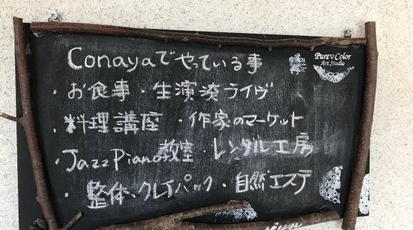 Conayaでやっている事
Pure Color
Art Studio
・お食事・生演湊ライヴ
・料理講座・作家のマーケット
・Jazz Piano教室・レンタル工房
・整体・クレイパック・自然エステ